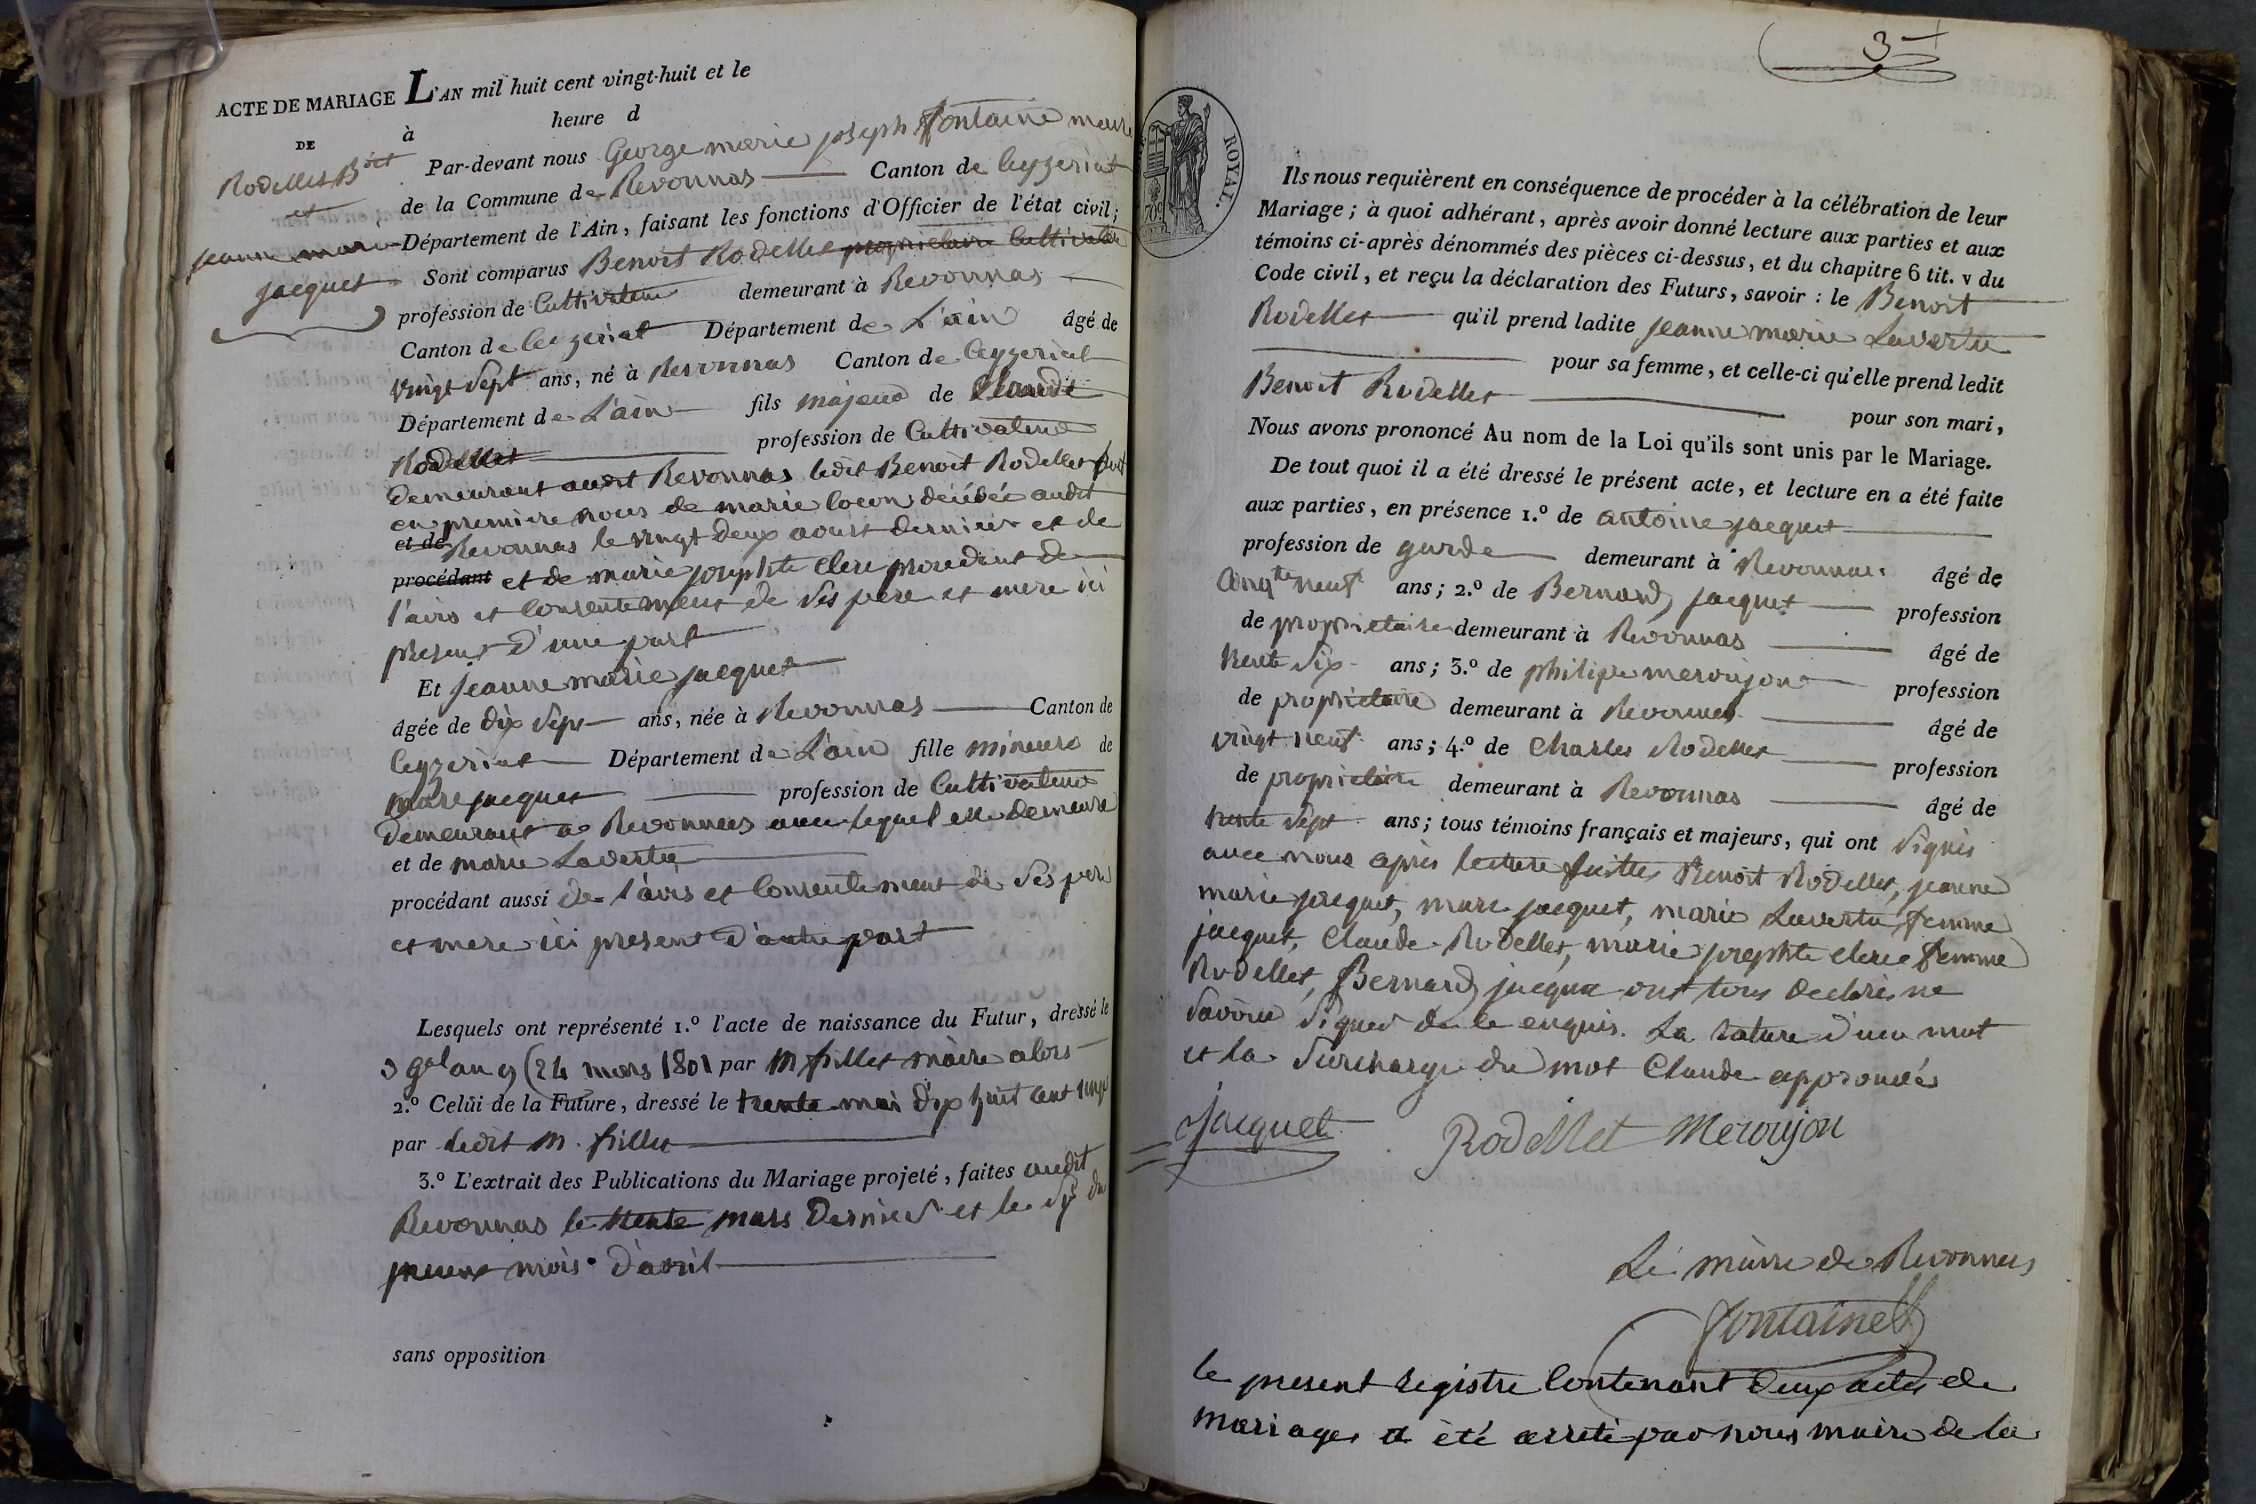 ACTE DE MARIAGE L'AN mil huit cent vingt-huit et le
à heure d
DE
Rodellet B.oit
et
jeanne marie
jacquet
Par-devant nous George marie joseph fontaine maire
de la Commune de Revonnas Canton de Ceyzeriat
Département de l'Ain, faisant les fonctions d'Officier de l'état civil;
Sont comparus Benoit Rodellet propriétaire Cultivateur
profession de Cultivateur demeurant à Revonnas
Canton de Ceyzeriat Département de L'ain âgé de
vingt sept ans, né à Revonnas Canton de Ceyzeriat
Département de L'ain fils majeur de Claude
Rodellet profession de Cultivateur
demeurant audit Revonnas ledit Benoit Rodellet
en premiere noces de marie locon décédée audit
et de Revonnas le vingt deux aoust dernier et de
procédant et de marie josephte clerc procedant de
l'avis et Consentement de Ses pere et mere ici
present d'une part
Et jeanne marie jacquet
âgée de dix sept ans, née à Revonnas Canton de
Ceyzeriat Département de L'ain fille mineure de
marc jacquet profession de Cultivateur
demeurant a Revonnas avec lequel elle demeure
et de marie Lavertu
procédant aussi de l'avis et Consentement de Ses pere
et mere ici present d'autre part
Lesquels ont représenté 1.º l'acte de naissance du Futur, dressé le
3 g.al an 9 (24 mars 1801 par M frillet maire alors
2.º Celui de la Future, dressé le trente mai dix huit cent
par ledit M. frillet
3.º L'extrait des Publications du Mariage projeté, faites audit
Revonnas le trente mars Dernier et le six du
present mois d'avril
sans opposition
3
ROYAL.
Ils nous requièrent en conséquence de procéder à la célébration de leur
Mariage; à quoi adhérant, après avoir donné lecture aux parties et aux
témoins ci-après dénommés des pièces ci-dessus, et du chapitre 6 tit. v du
Code civil, et reçu la déclaration des Futurs, savoir : le Benoit
Rodellet qu'il prend ladite jeanne marie Lavertu
pour sa femme, et celle-ci qu'elle prend ledit
Benoit Rodellet pour son mari,
Nous avons prononcé Au nom de la Loi qu'ils sont unis par le Mariage.
De tout quoi il a été dressé le présent acte, et lecture en a été faite
aux parties, en présence 1.º de antoine jacquet
profession de garde demeurant à Revonnas âgé de
Cinq.te neuf ans; 2.º de Bernard jacquet profession
de propriétaire demeurant à Revonnas âgé de
trente Six ans; 3.º de philipe meroujon profession
de propriétaire demeurant à Revonnas âgé de
vingt neuf ans; 4.º de Charles Rodellet profession
de propriétaire demeurant à Revonnas âgé de
trente Sept ans; tous témoins français et majeurs, qui ont Signés
avec nous après lecture faitte Benoit Rodellet, jeanne
marie jacquet, marc jacquet, marie Lavertu femme
jacquet, Claude Rodellet, marie josephte clerc femme
Rodellet, Bernard jacquet ont tous declarés ne
Savoir Signer de le enquis. La rature d'un mot
et la Surcharge du mot Claude approuvés
Jacquet Rodellet Meroujon
Le maire de Revonnas
fontaine
le present registre Contenant deux actes de
mariages a été arreté par nous maire de la